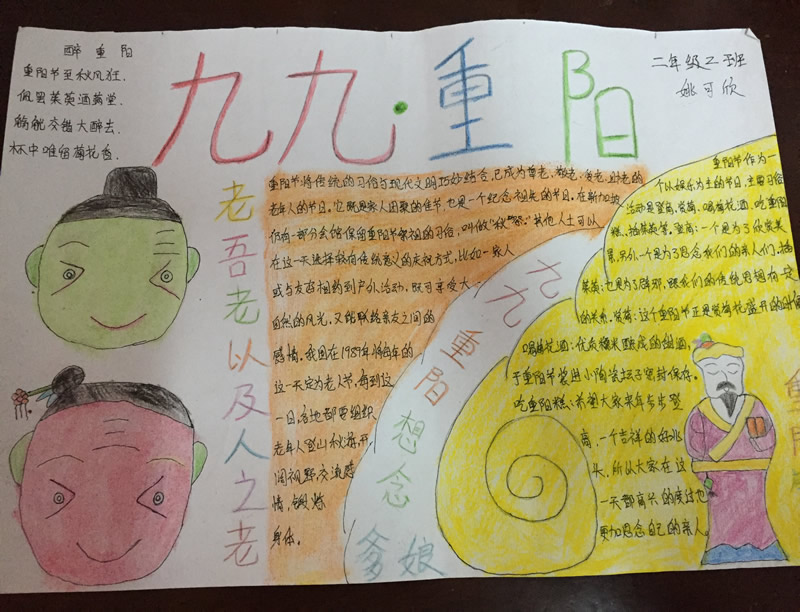 醉重阳
重阳节至秋风狂.
佩思茱萸酒满堂.
觥觥交错大醉去.
杯中唯留菊花香.
九九·重阳
二年级2班
姚可欣
老吾老以及人之老
重阳节将传统的习俗与现代文明巧妙结合,已成为尊老、敬老、爱老、助老的
老年人的节日。它既是家人团聚的佳节,也是一个纪念祖先的节日。在新加坡
仍有一部分会馆保留重阳节祭祖的习俗,叫做“秋祭”。其他人士可以
在这一天选择较有传统意义的庆祝方式,比如一家人
或与友存相约到户外活动,既可享受大
自然的风光,又能联络亲友之间的
感情。我国在1989年将每年的
这一天定为老人节,每到这
一日,各地都要组织
老年人登山秋游,开
阔视野交流感
情,锻炼
身体。
九九重阳
想念
爹娘
重阳节作为一
个以娱乐为主的节日,主要习俗
活动是登高、赏菊、喝菊花酒、吃重阳
糕、插茱萸等。登高:一个是为了欣赏美
景,另外一个是为了思念我们的亲人们。插
茱萸:也是为了辟邪,跟我们的传统思想有一定
的关系。赏菊:这个重阳节正是赏菊花盛开的时候
喝菊花酒:优质糯米酿成的甜酒,
于重阳节装进小陶瓷坛子密封保存。
吃重阳糕:希望大家来年步步登
高,一个吉祥的好兆
头,所以大家在这
一天都高兴的度过也
更加思念自己的亲人。
重阳